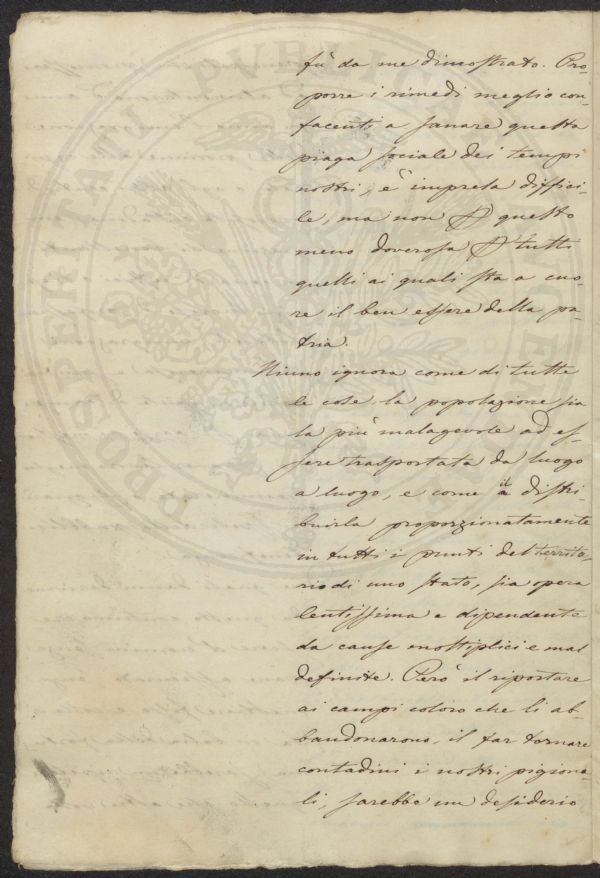 fù da me dimostrato. Pro-
porre i rimedi meglio con-
facenti a sanare questa
piaga sociale dei tempi
nostri, è impresa diffici-
le, ma non questo
meno doverosa tutti
quelli ai quali sta a cuo-
re il ben essere della pa-
tria.
Niuno ignora come di tutte
le cose la popolazione sia
la più malagevole ad es-
sere trasportata da luogo
a luogo, e come il distri-
buirla proporzionatamente
in tutti i punti del territo-
rio di uno stato, sia opera
lentissima e dipendente
da cause moltiplici e mal
definite. Però il riportare
ai campi coloro che li ab-
bandonarono, il far tornare
contadini i nostri pigiona-
li, sarebbe un desiderio
PROSPERITATI PVBLICAE